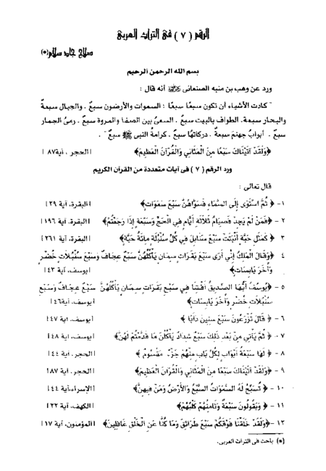 الرقم ( ٧ ) في التراث العربي
صلاح جاد سلام(*)
بسم الله الرحمن الرحيم
ورد عن وهب بن منبه الصنعاني أنه قال :
" كادت الأشياء أن تكون سبعًا سبعًا : السموات والأرضون سبعٌ . والجبال سبعةٌ
والبحار سبعة . الطواف بالبيت سبعٌ . السعي بين الصفا والمروة سبع . رمي الجمار
سبع . أبواب جهنم سبعةٌ . دركاتها سبعٌ . كرامة النبي ﷺ سبعٌ " .
﴿وَلَقَدْ آتَيْنَاكَ سَبْعًا مِنَ الْمَثَانِي وَالْقُرْآنَ الْعَظِيمَ﴾ [الحجر ، آية ٨٧]
ورد الرقم ( ٧ ) في آيات متعددة من القرآن الكريم
قال تعالى :
١ - ﴿ ثُمَّ اسْتَوَى إِلَى السَّمَاءِ فَسَوَّاهُنَّ سَبْعَ سَمَوَاتٍ﴾ [البقرة، آية ٢٩]
٢ - ﴿فَمَنْ لَمْ يَجِدْ فَصِيَامُ ثَلَاثَةِ أَيَّامٍ فِي الْحَجِّ وَسَبْعَةٍ إِذَا رَجَعْتُمْ﴾ [البقرة، آية ١٩٦]
٣ - ﴿كَمَثَلِ حَبَّةٍ أَنْبَتَتْ سَبْعَ سَنَابِلَ فِي كُلِّ سُنْبُلَةٍ مِائَةُ حَبَّةٍ﴾ [البقرة، آية ٢٦١]
٤ - ﴿وَقَالَ الْمَلِكُ إِنِّي أَرَى سَبْعَ بَقَرَاتٍ سِمَانٍ يَأْكُلُهُنَّ سَبْعٌ عِجَافٌ وَسَبْعَ سُنْبُلَاتٍ خُضْرٍ
وَأُخَرَ يَابِسَاتٍ﴾ [يوسف، آية ٤٣]
٥ - ﴿يُوسُفُ أَيُّهَا الصِّدِّيقُ أَفْتِنَا فِي سَبْعِ بَقَرَاتٍ سِمَانٍ يَأْكُلُهُنَّ سَبْعٌ عِجَافٌ وَسَبْعِ
سُنْبُلَاتٍ خُضْرٍ وَأُخَرَ يَابِسَاتٍ﴾ [يوسف، آية ٤٦]
٦ - ﴿ قَالَ تَزْرَعُونَ سَبْعَ سِنِينَ دَأَبًا ﴾ [يوسف، آية ٤٧]
٧ - ﴿ ثُمَّ يَأْتِي مِنْ بَعْدِ ذَلِكَ سَبْعٌ شِدَادٌ يَأْكُلْنَ مَا قَدَّمْتُمْ لَهُنَّ﴾ [يوسف، آية ٤٨]
٨ - ﴿ لَهَا سَبْعَةُ أَبْوَابٍ لِكُلِّ بَابٍ مِنْهُمْ جُزْءٌ مَقْسُومٌ ﴾ [الحجر ، آية ٤٤]
٩ - ﴿وَلَقَدْ آتَيْنَاكَ سَبْعًا مِنَ الْمَثَانِي وَالْقُرْآنَ الْعَظِيمَ﴾ [الحجر ، آية ٨٧]
١٠ - ﴿ تُسَبِّحُ لَهُ السَّمَوَاتُ السَّبْعُ وَالْأَرْضُ وَمَنْ فِيهِنَّ﴾ [الإسراء، آية ٤٤]
١١ - ﴿ وَيَقُولُونَ سَبْعَةٌ وَثَامِنُهُمْ كَلْبُهُمْ﴾ [الكهف، آية ٢٢]
١٢ - ﴿وَلَقَدْ خَلَقْنَا فَوْقَكُمْ سَبْعَ طَرَائِقَ وَمَا كُنَّا عَنِ الْخَلْقِ غَافِلِينَ﴾ [المؤمنون، آية ١٧]
(*) باحث في التراث العربي.